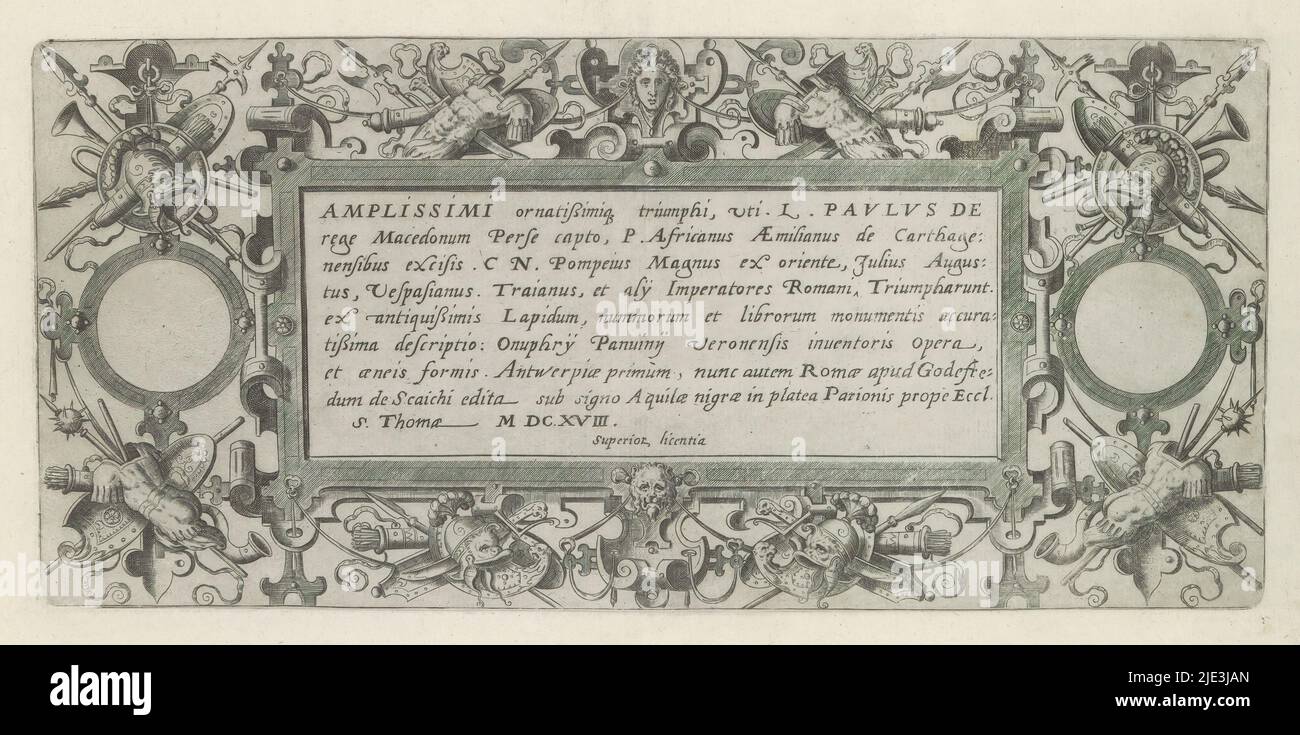 AMPLISSIMI ornatißimiq triumphi, uti. L. PAVLVS DE
rege Macedonum Perse capto, P. Africanus Æmilianus de Carthage:
nensibus excisis. C N. Pompeius Magnus ex oriente, Julius Augus:
tus, Vespasianus. Traianus, et alÿ Imperatores Romani, Triumpharunt.
ex antiquißimis Lapidum, nummorum et librorum monumentis accura:
tißima descriptio: Onuphrÿ Panuinÿ Veronensis inventoris Opera,
et æneis formis. Antwerpiæ primum, nunc autem Romæ apud Godefre:
dum de Scaichi edita sub signo Aquilæ nigræ in platea Parionis prope Eccl.
S. Thomæ M DC.XVIII.
Superior, licentia
alamy
alamy
Image ID: 2JE3JAN
www.alamy.com